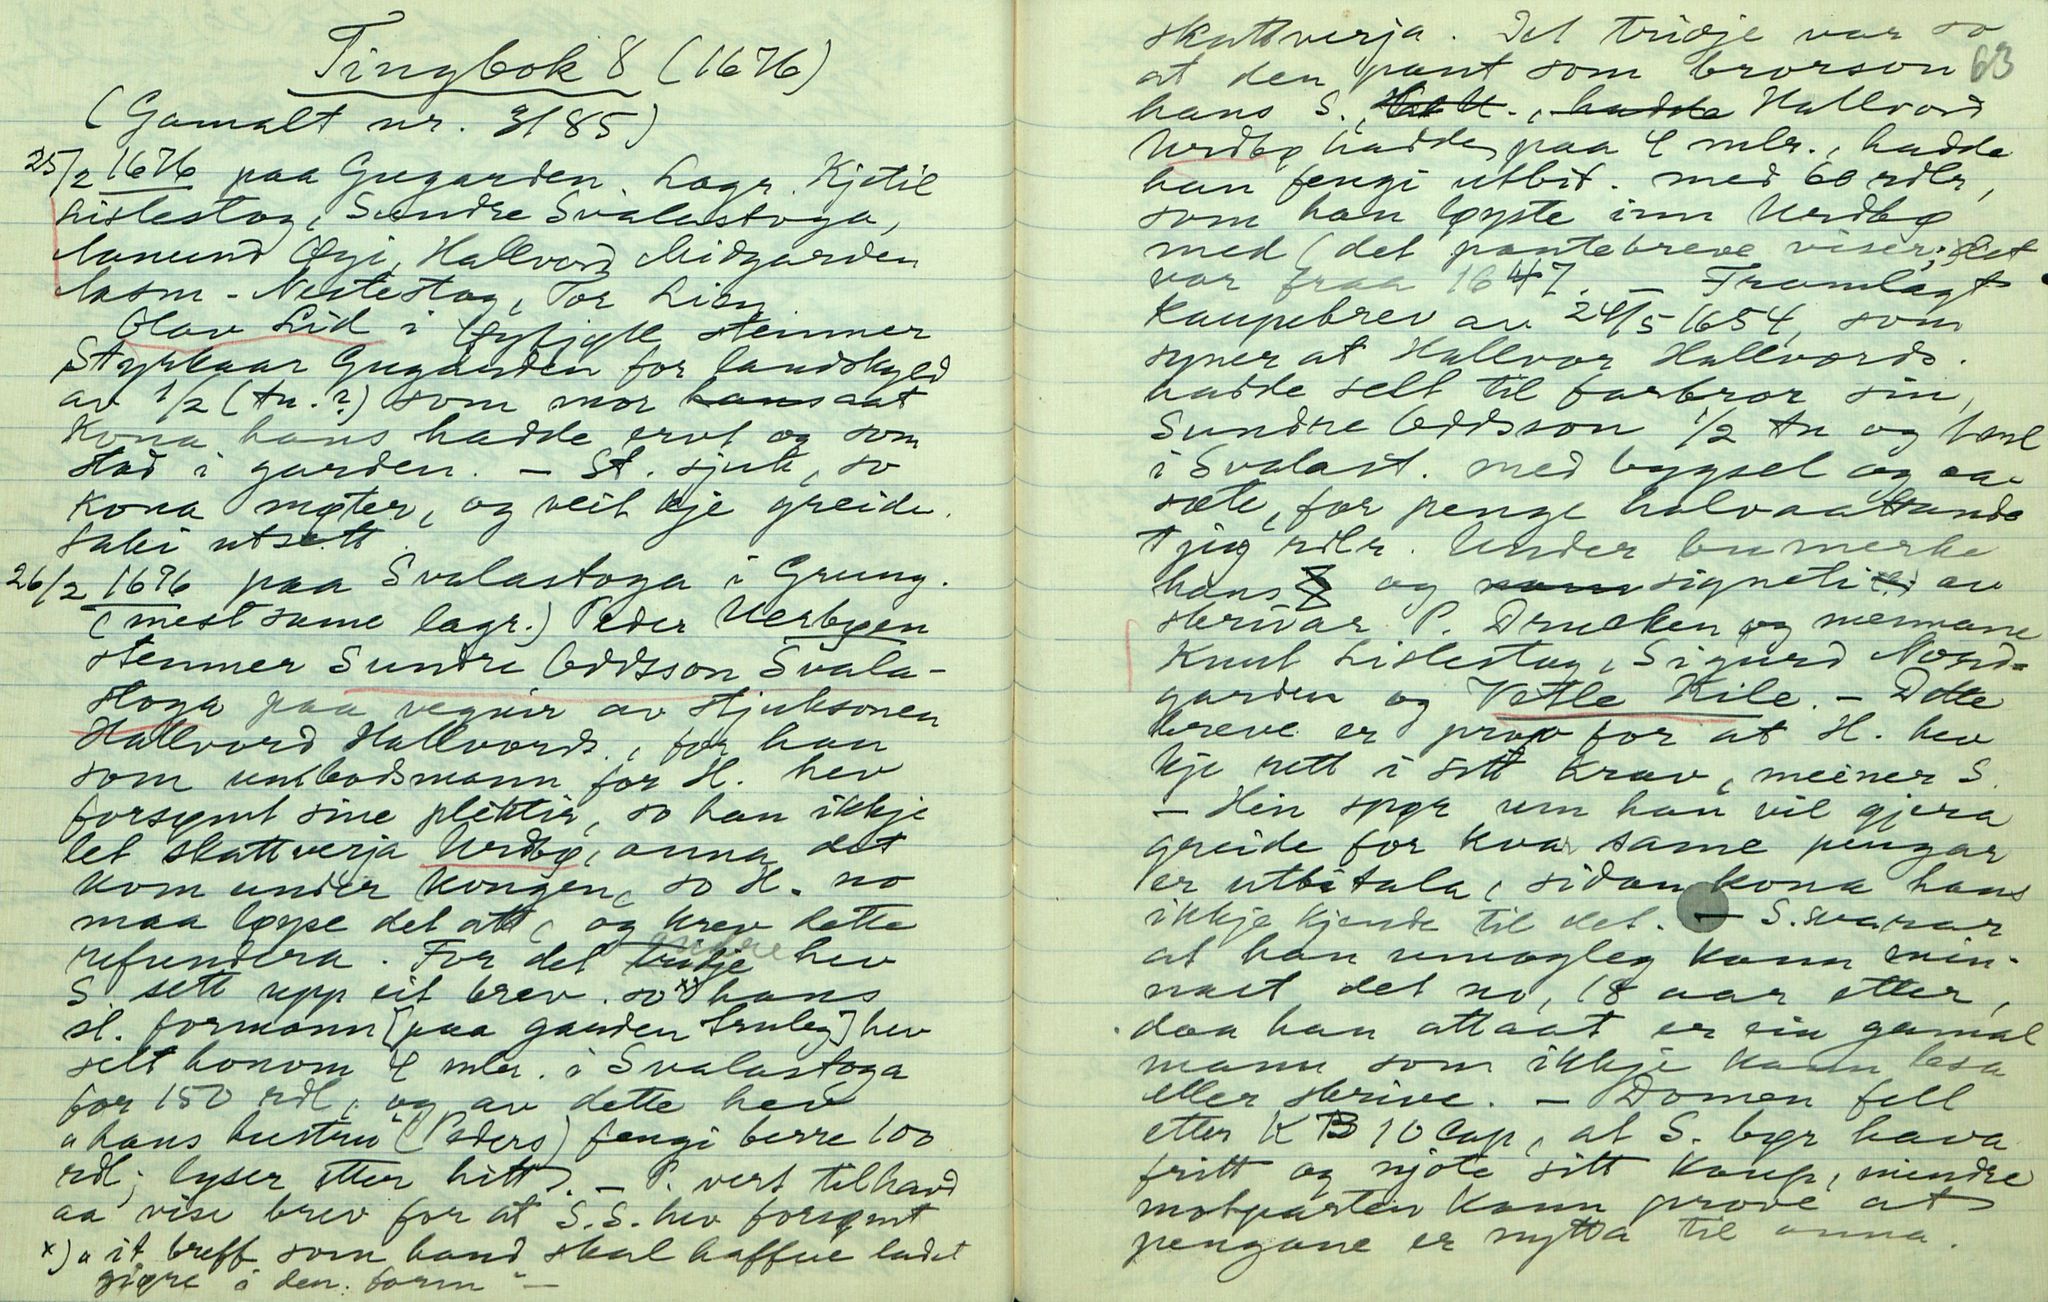 Tingbok 8 (1676)
(Gamalt nr. 3/85)
25/2 1676 paa Gugarden. Lagr. Kjetil
Lislestog, Sundre Svalastoga,
Aamund Øyi, Hallvord Midgarden
Aasm. Nestestog, Tor Lien
Olav Lid i stemner
Styrkaar Gugarden for landskyld
av 1/2 (tn.?) som mor hans aat
kona hans hadde ervt og som
stod i garden. — St. sjuk, so
kona møter, og veit kje greide.
Saki utsett.
26/2 1676 paa Svalastoga i Grung.
(mest same lagr.) Peder Uerbøen
stemner Sundre Oddsson Svala-
stoga paa vegnir av stjuksonen
Hallvord Hallvords., for han
som umbodsmann for H. hev
forsømt sine plikter, so han ikkje
let skattverja Urdbø, anna det
kom under kongen, so H. no
maa løyse det att, og krev dette
refundera. For det tridje andre hev
S. sett upp eit brev so x) hans
sl. formann [paa garden truleg] hev
selt honom 4 mlr. i Svalastoga
for 150 rdl, og av dette hev
"hans hustru" (Peders) fengi berre 100
rdl; lyser etter hitt. — P. vert tilhavd
aa vise brev for at S.S. hev forsømt
x) "it breff som hand skal haffue ladet
giøre i den form" —
63
skattverja. Det tridje var so
at den pant som brorson
hans S., hadde Hallvord
Urdbø hadde paa 4 mlr., hadde
han fengi utbit. med 60 rdlr,
som han løyste inn Urdbø
med (det pantebreve viser; det
var fraa 1647. — Framlagt
Kaupebrev av 24/5 1654, som
syner at Hallvor Hallvords.
hadde selt til farbror sin,
Sundre Oddsson 1/2 tn og
i Svalast. med bygsel og aa-
sæte, for penge halvaattande
tjug rdlr. Under bumerke
hans og som signeti av
skrivar P. Drucken og mennane
Knut Lislestog, Sigurd Nord-
garden og Vetle Kile. — Dette
breve er prov for at H. hev
kje rett i sitt krav, meiner S.
— Hin spør um han vil gjera
greide for kvar same pengar
er utbitala, sidan kona hans
ikkje kjende til det. — S. svarar
at han umogleg kann min-
nast det no, 18 aar etter,
daa han attaat er ein gamal
mann som ikkje kann lesa
eller skrive. — Domen fell
etter K B 10 Cap, at S. bør hava
fritt og njote sitt kaup, mindre
motparten kann prove at
pengane er nytta til anna.